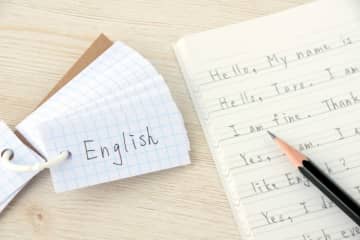 English
Hello, My name is
Hello, Taro. I am
I am fine. Thank
Yes, I am. I
like English?
Yes, I do
English